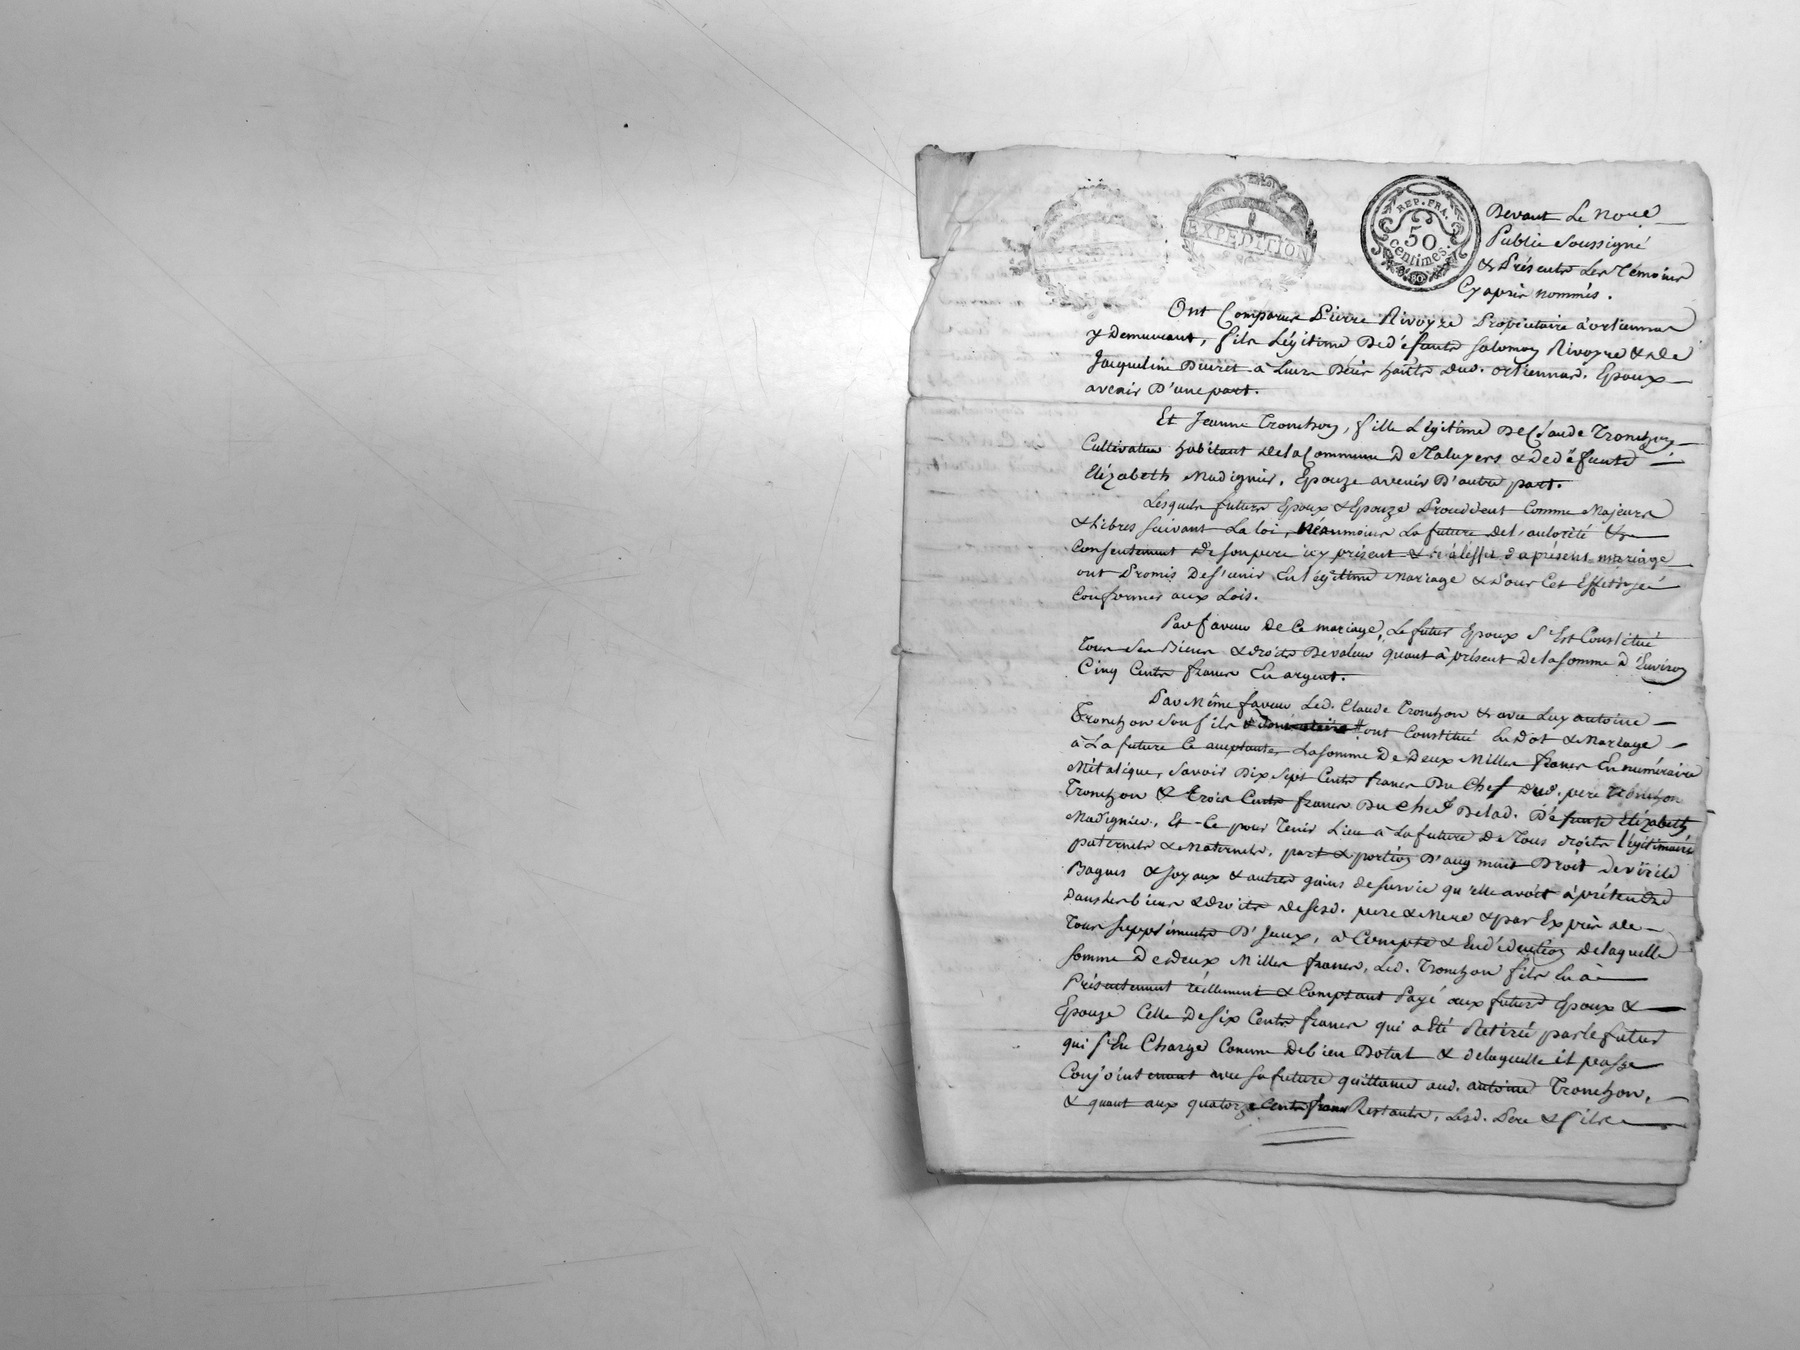 EXPEDITION
REP. FRA.
50
centimes.
Devant Le Noue
Public Soussigné
& Présents Les Témoins
Cy après nommés.
Ont Comparus Pierre Rivoyre Propriétaire à orliennas
y Demeurant, fils Légitime De défunts Salomon Rivoyre & de
Jacqueline à Leurs Déces habts dud. orliennas. Epoux
avenir D'une part.
Et Jeanne Tronchon, fille Légitime De Claude Tronchon
Cultivateur habitant dela Commune De Taluyers & de défunte
Elizabeth Madignier, Epouze avenir D'autre part.
Lesquels futurs Epoux & Epouze Procedent Comme Majeurs
& libres suivant La loi, néanmoins La future del'autorité &
Consentement de son pere icy présent & à l'effet daprésent mariage
ont Promis De s'unir En légitime Mariage & Pour Cet Effet
Conformes aux Lois.
Par faveur de Ce mariage, Le futur Epoux S'Est Constitué
Tous Ses Biens & droits De valeur quant à présent dela somme d'Environ
Cinq Cents francs En argent.
Par Même faveur Led. Claude Tronchon & avec Luy antoine
Tronchon Son fils ont Constitué En Dot & Mariage
à La future Ce acceptante, La somme De Deux Milles francs En numéraire
Métalique, Savoir Dix Sept Cents francs Du Chef dud. pere Tronchon
Tronchon & Trois Cents francs Du Chef Delad. Défunte Elizabeth
Madignier, Et Ce pour Tenir Lieu à La future De Tous droits légitimaire
paternels & Maternels, part & portion D'augment Droit de virile
Bagues & Joyaux & autres gains de survie qu'elle avoit à prétendre
dans les biens & droits de sesd. pere & Mere & par Exprès de
Tous suppléments D'Jceux, à Compte & En déduction delaquelle
somme De deux Milles francs, Led. Tronchon fils En à
Présentement réellement & Comptant Payé aux futurs Epoux &
Epouze Celle De Six Cents francs qui a Eté Retirée par le futur
qui s'En Charge Comme De bien Dotal & delaquelle il passe
Conjointement avec Sa future quittance aud. antoine Tronchon,
& quant aux quatorze Cents francs Restants, Lesd. Pere & fils